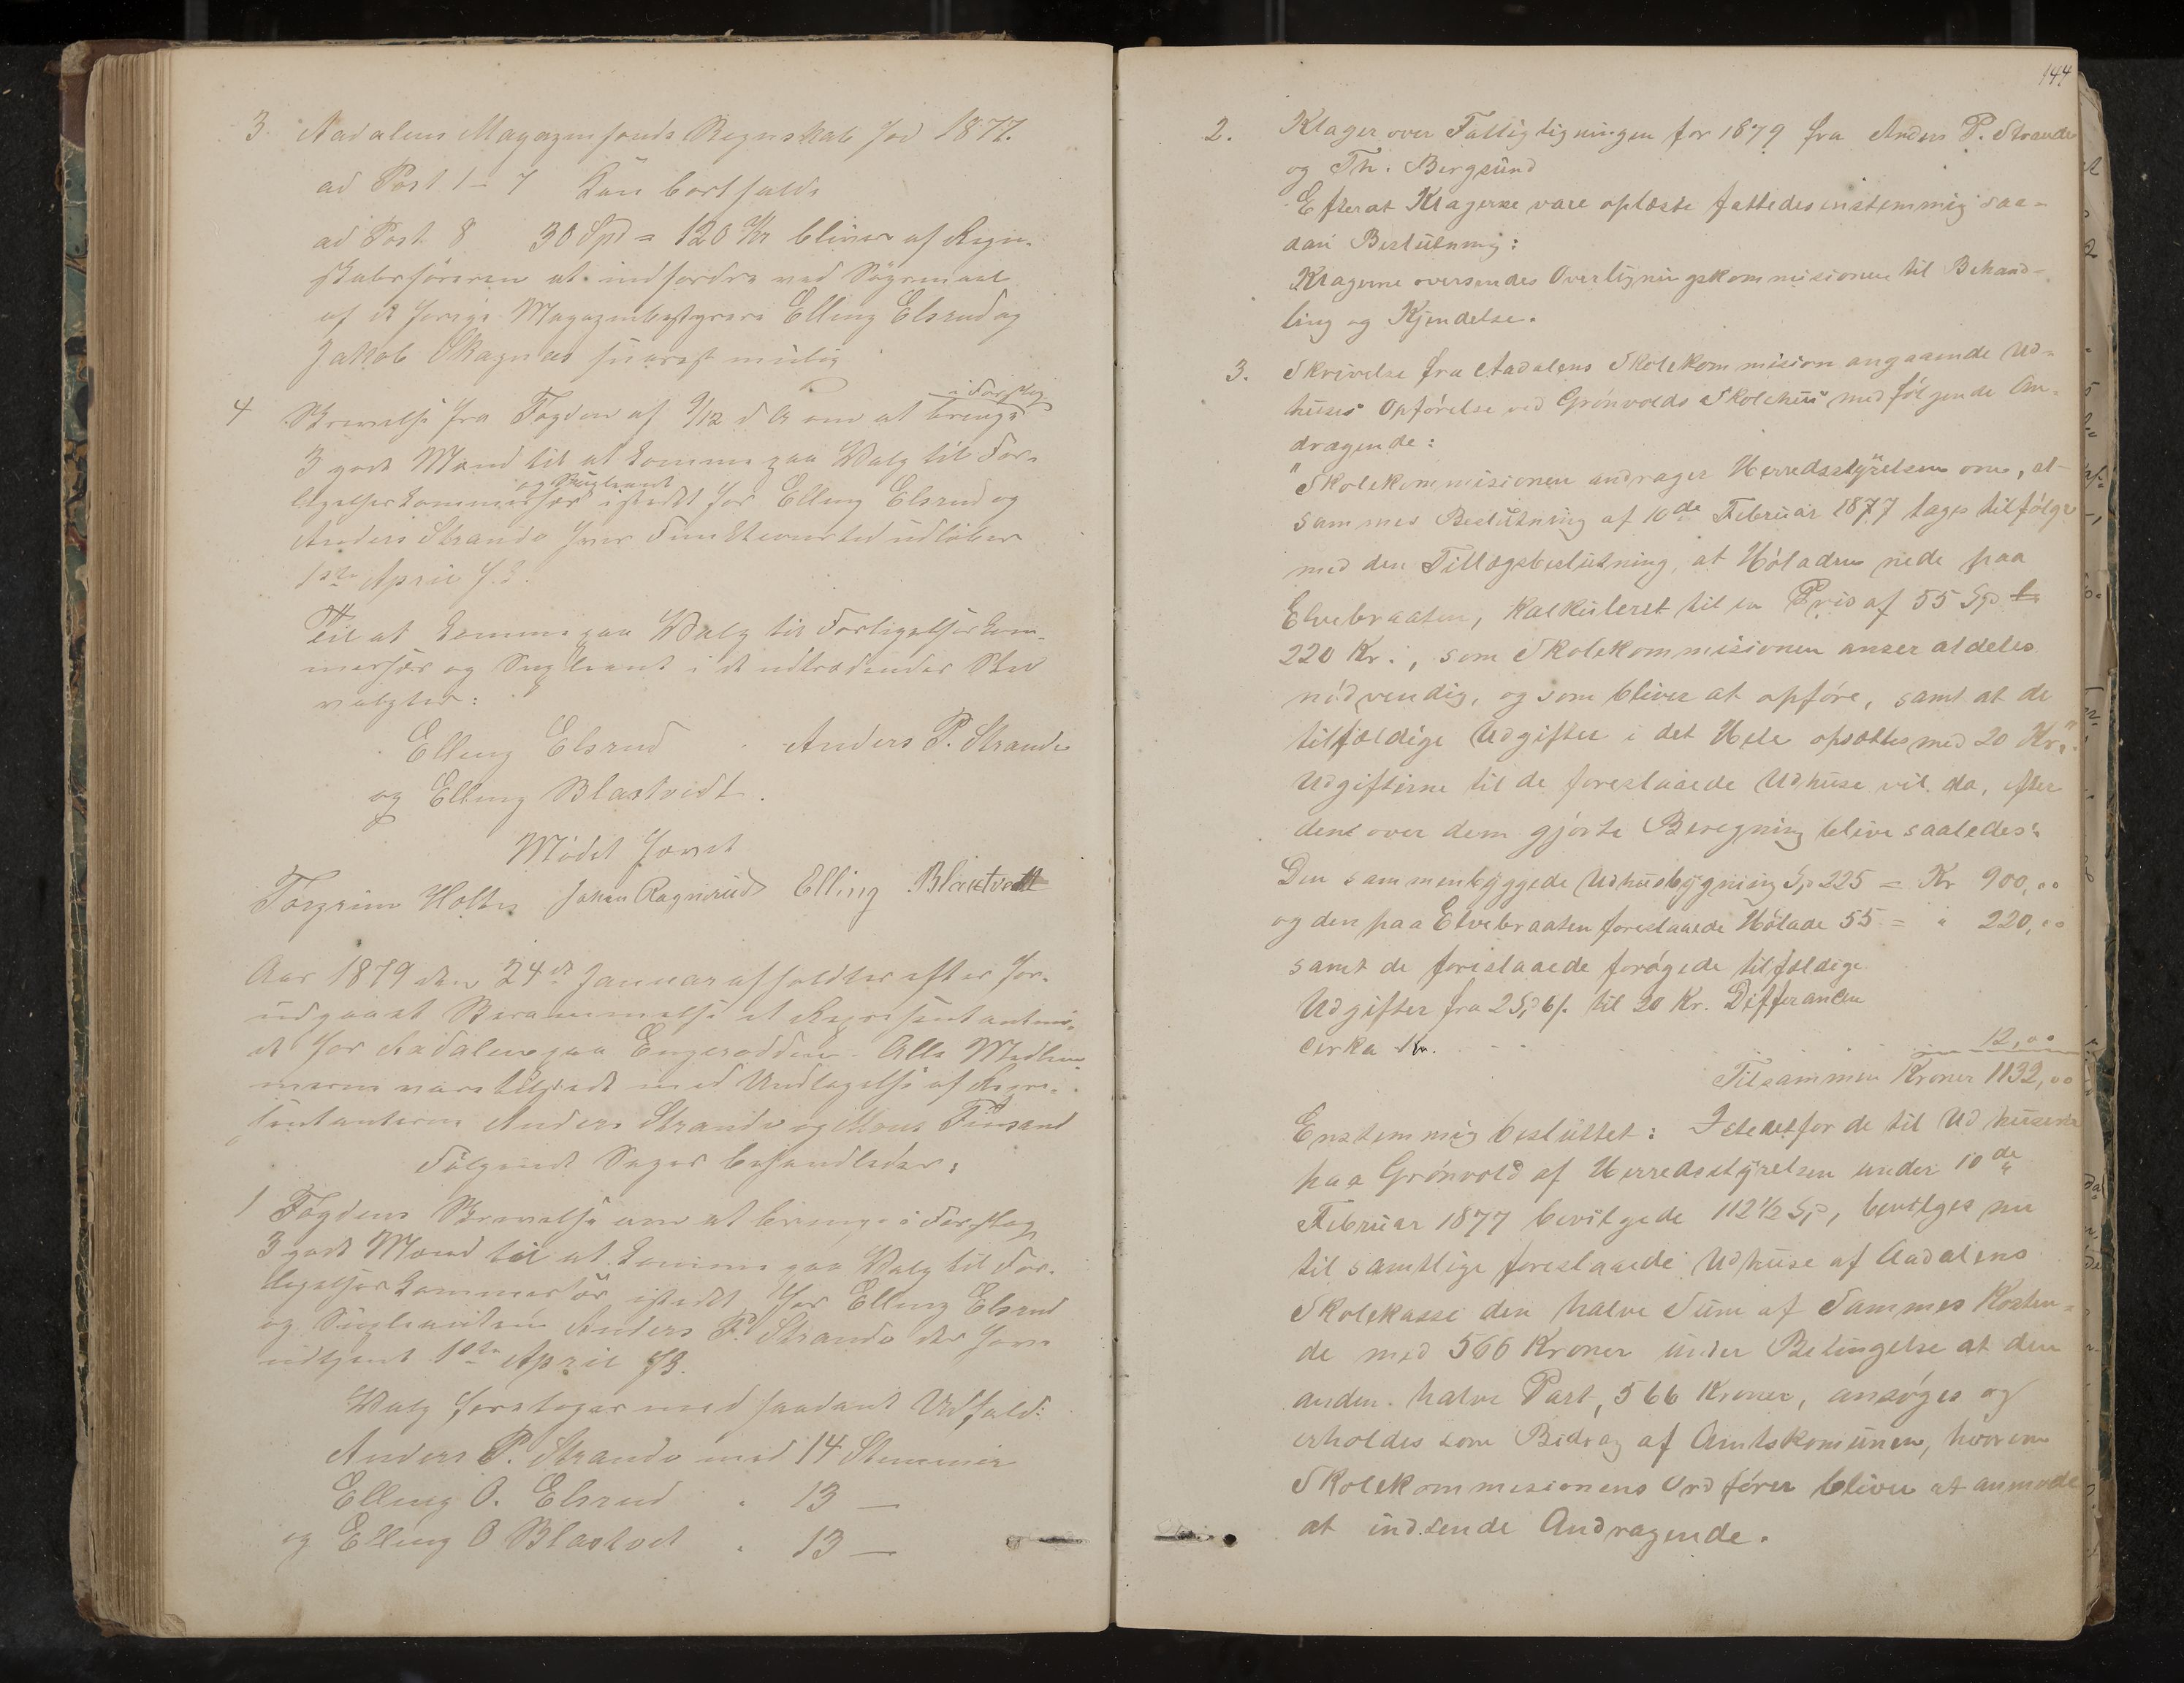 3 Aadalens Magazinfonds Regnskab for 1877.
ad Post 1–7 Kan bortfalde
ad Post 8 30 Spd = 120 Kr bliver af Regn-
skabsføreren at indfordre ved Søgsmaal
af de forige Magazinbestyrere Elling Elsrud og
Jakob Skagnæs snarest mulig
4 Skrivelse fra Fogden af 9/12 d A om at bringe i Forslag
3 gode Mænd til at komme paa Valg til For-
ligelseskommissær og Supleant istedet for Elling Elsrud og
Anders Strande hvis Funktionstid udløber
1ste April f. A.
Til at komme paa Valg til Forligelseskom-
missær og Supleant i de udtrædendes Sted
valgtes:
Elling Elsrud Anders P. Strande
og Elling Blaktvedt.
Mødet hævet
Torgrim Holte Johan Ragnrud Elling Blaktvedt
Aar 1879 den 24de Januar afholdtes efter for-
udgaaet Berammelse et Repræsentantmø-
de for Aadalen paa Engerodden. Alle Medlem-
merne vare tilstede med Undtagelse af Repræ-
sentanterne Anders Strande og Mons Finsand
Følgende Sager behandledes:
1 Fogdens Skrivelse om at bringe i Forslag
3 gode Mænd til at komme paa Valg til For-
ligelseskommissær istedet for Elling Elsrud
og Supleanten Anders P. Strande der have
udtjent 1ste April
Valg foretoges med saadant Udfald:
Anders P. Strande med 14 Stemmer
Elling O. Elsrud " 13 —
og Elling O Blaktvet " 13 —
144
2. Klager over Fattigligningen for 1879 fra Anders P. Strande
og Th. Bergsund
Efterat Klagerne vare oplæste fattedes enstemmig saa-
dan Beslutning:
Klagerne oversendes Overligningskommisionen til Behand-
ling og Kjendelse.
3. Skrivelse fra Aadalens Skolekommision angaaende Ud-
huses Opførelse ved Grønvolds Skolehus med følgende An-
dragende:
"Skolekommisionen andrager Herredsstyrelsen om, at
sammes Beslutning af 10de Februar 1877 tages tilfølge
med den Tillægsbeslutning, at Høladen nede paa
Elvebraaten, kalkuleret til en Pris af 55 Spd
220 Kr., som Skolekommisionen anser aldeles
nødvendig, og som bliver at opføre, samt at de
tilfældige Udgifter i det Hele opsættes med 20 Kr."
Udgifterne til de foreslaaede Udhuse vil da, efter
den over dem gjorte Beregning blive saaledes:
Den sammenbyggede Udhusbygning Spd 225 = Kr 900,00
og den paa Elvebraaten foreslaaede Hølade 55 = " 220,00
samt de foreslaaede forøgede tilfældige
Udgifter fra 2 Spd 6 s. til 20 Kr. Differancen
cirka Kr. . . . . . 12,00
Tilsammen Kroner 1132,00
Enstemmig besluttet: Istedetfor de til Udhusene
paa Grønvold af Herredsstyrelsen under 10de
Februar 1877 bevilgede 112 1/2 Spd, bevilges nu
til samtlige foreslaaede Udhuse af Aadalens
Skolekasse den halve Sum af Sammes Kosten-
de med 566 Kroner under Betingelse at den
anden halve Part, 566 Kroner, ansøges og
erholdes som Bidrag af Amtskomunen, hvorom
Skolekommisionens Ordfører bliver at anmode
at indsende Andragende.